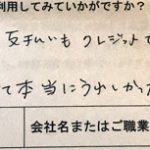 利用してみていかがですか?
支払いもクレジットで
て本当にうれしかっ
会社名またはご職業